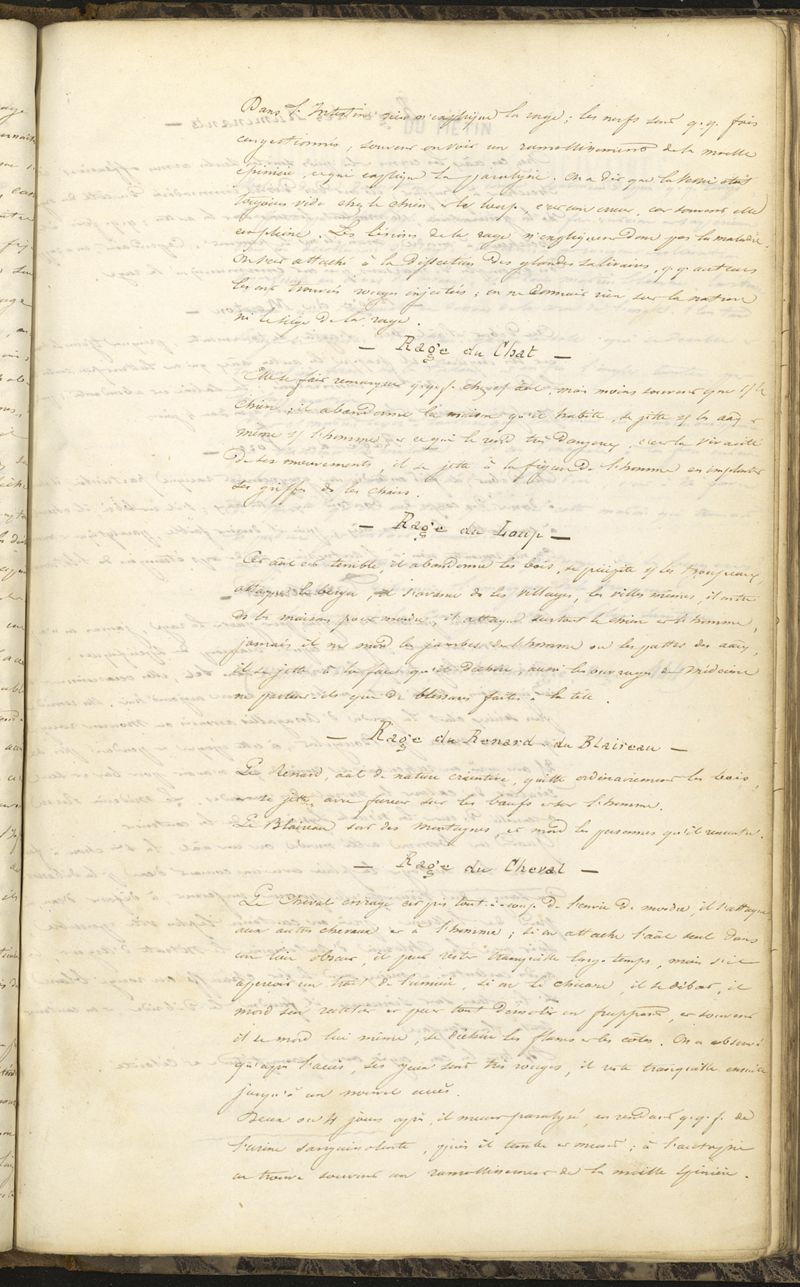 Dans l'Intestin rien n'explique la rage ; les nerfs sont q.q. fois
congestionnés, souvent on voit un ramollissement de la moelle
épinière, ce qui explique la paralysie. On a dit que la vessie était
toujours vide chez le chien et le loup, c'est une erreur, car souvent elle
est pleine. Les lésions de la rage n'expliquent donc pas la maladie.
On s'est attaché à la dissection des glandes salivaires, q.q. auteurs
les ont trouvées rouges injectées ; on ne connait rien sur la nature
ni le siège de la rage.
— Rage du Chat —
Elle se fait remarquer q.q.f. chez cet aal, mais moins souvent que
chien ; il abandonne la maison qu'il habite, se jette les aux et
même l'homme, et ce qui le rend très dangereux, c'est la vivacité
de ses mouvements, il se jette à la figure de l'homme en implantant
ses griffes ds les chairs.
— Rage du Loup —
Cet aal est terrible, il abandonne les bois, se précipite les troupeaux,
attaque le berger, il s'avance ds les villages, les villes mêmes, il entre
ds les maisons pour mordre, il attaque surtout le chien et l'homme,
jamais il ne mord les jambes de l'homme ou les pattes des aux,
il se jette à la face qu'il déchire, aussi les ouvrages de médecine
ne parlent-ils que de blessures faites à la tête.
— Rage du Renard - du Blaireau —
Le Renard, aal de nature craintive, quitte ordinairement les bois,
et se jette avec fureur sur les bœufs et sur l'homme.
Le Blaireau sort des montagnes, et mord les personnes qu'il rencontre.
— Rage du Cheval —
Le Cheval enragé est pris tout-à-coup de l'envie de mordre, il s'attaque
aux autres chevaux et à l'homme ; si on attache l'aal seul dans
un lieu obscur, il peut rester tranquille long-temps, mais s'il
aperçoit un trait de lumière, si on le , il se débat, il
mord son ratelier et peut tout démolir en frappant, et souvent
il se mord lui même, se déchire les flancs et les côtes. On a observé
qu'après l'accès, ses yeux sont très rouges, il reste tranquille ensuite
jusqu'à un nouvel accès.
Deux ou 4 jours après, il meurt paralysé, en rendant q.q.f. de
l'urine sanguinolente, puis il tombe et meurt ; à l'autopsie
on trouve souvent un ramollissement de la moelle épinière.